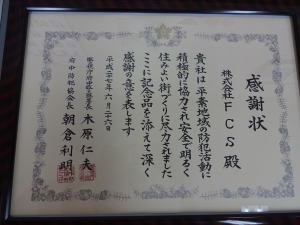 感謝状
株式会社FCS殿
貴社は、平素地域の防犯活動に
積極的に協力され安全で明るく
住みよい街づくりに尽力されました
ここに記念品を添えて深く
感謝の意を表します
平成二十七年六月二十六日
警視庁府中警察署長 木原仁夫
府中防犯協会長 朝倉利明